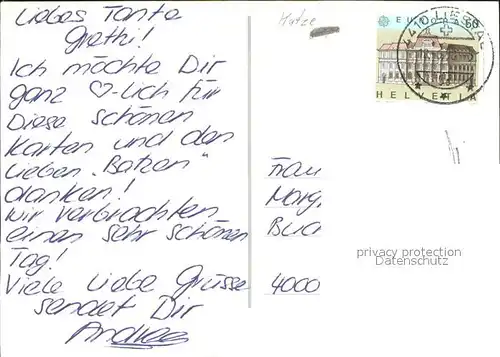 Liebes Tante
Grethi!
Ich möchte Dir
ganz ♡-lich für
Diese schönen
Karten und den
lieben "Batzen"
danken!
Wir verbrachten
einen sehr schönen
Tag!
Viele liebe Grüsse
sendet Dir
Andrea
Katze
EUROPA 50
HELVETIA
4410 LIESTAL
Frau
Marg.
4000
privacy protection
Datenschutz